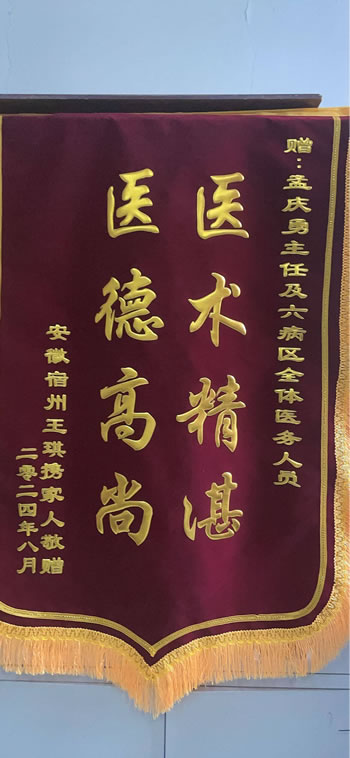 赠：孟庆勇主任及六病区全体医务人员
医术精湛
医德高尚
安徽宿州王琪携家人敬赠
二零二四年八月